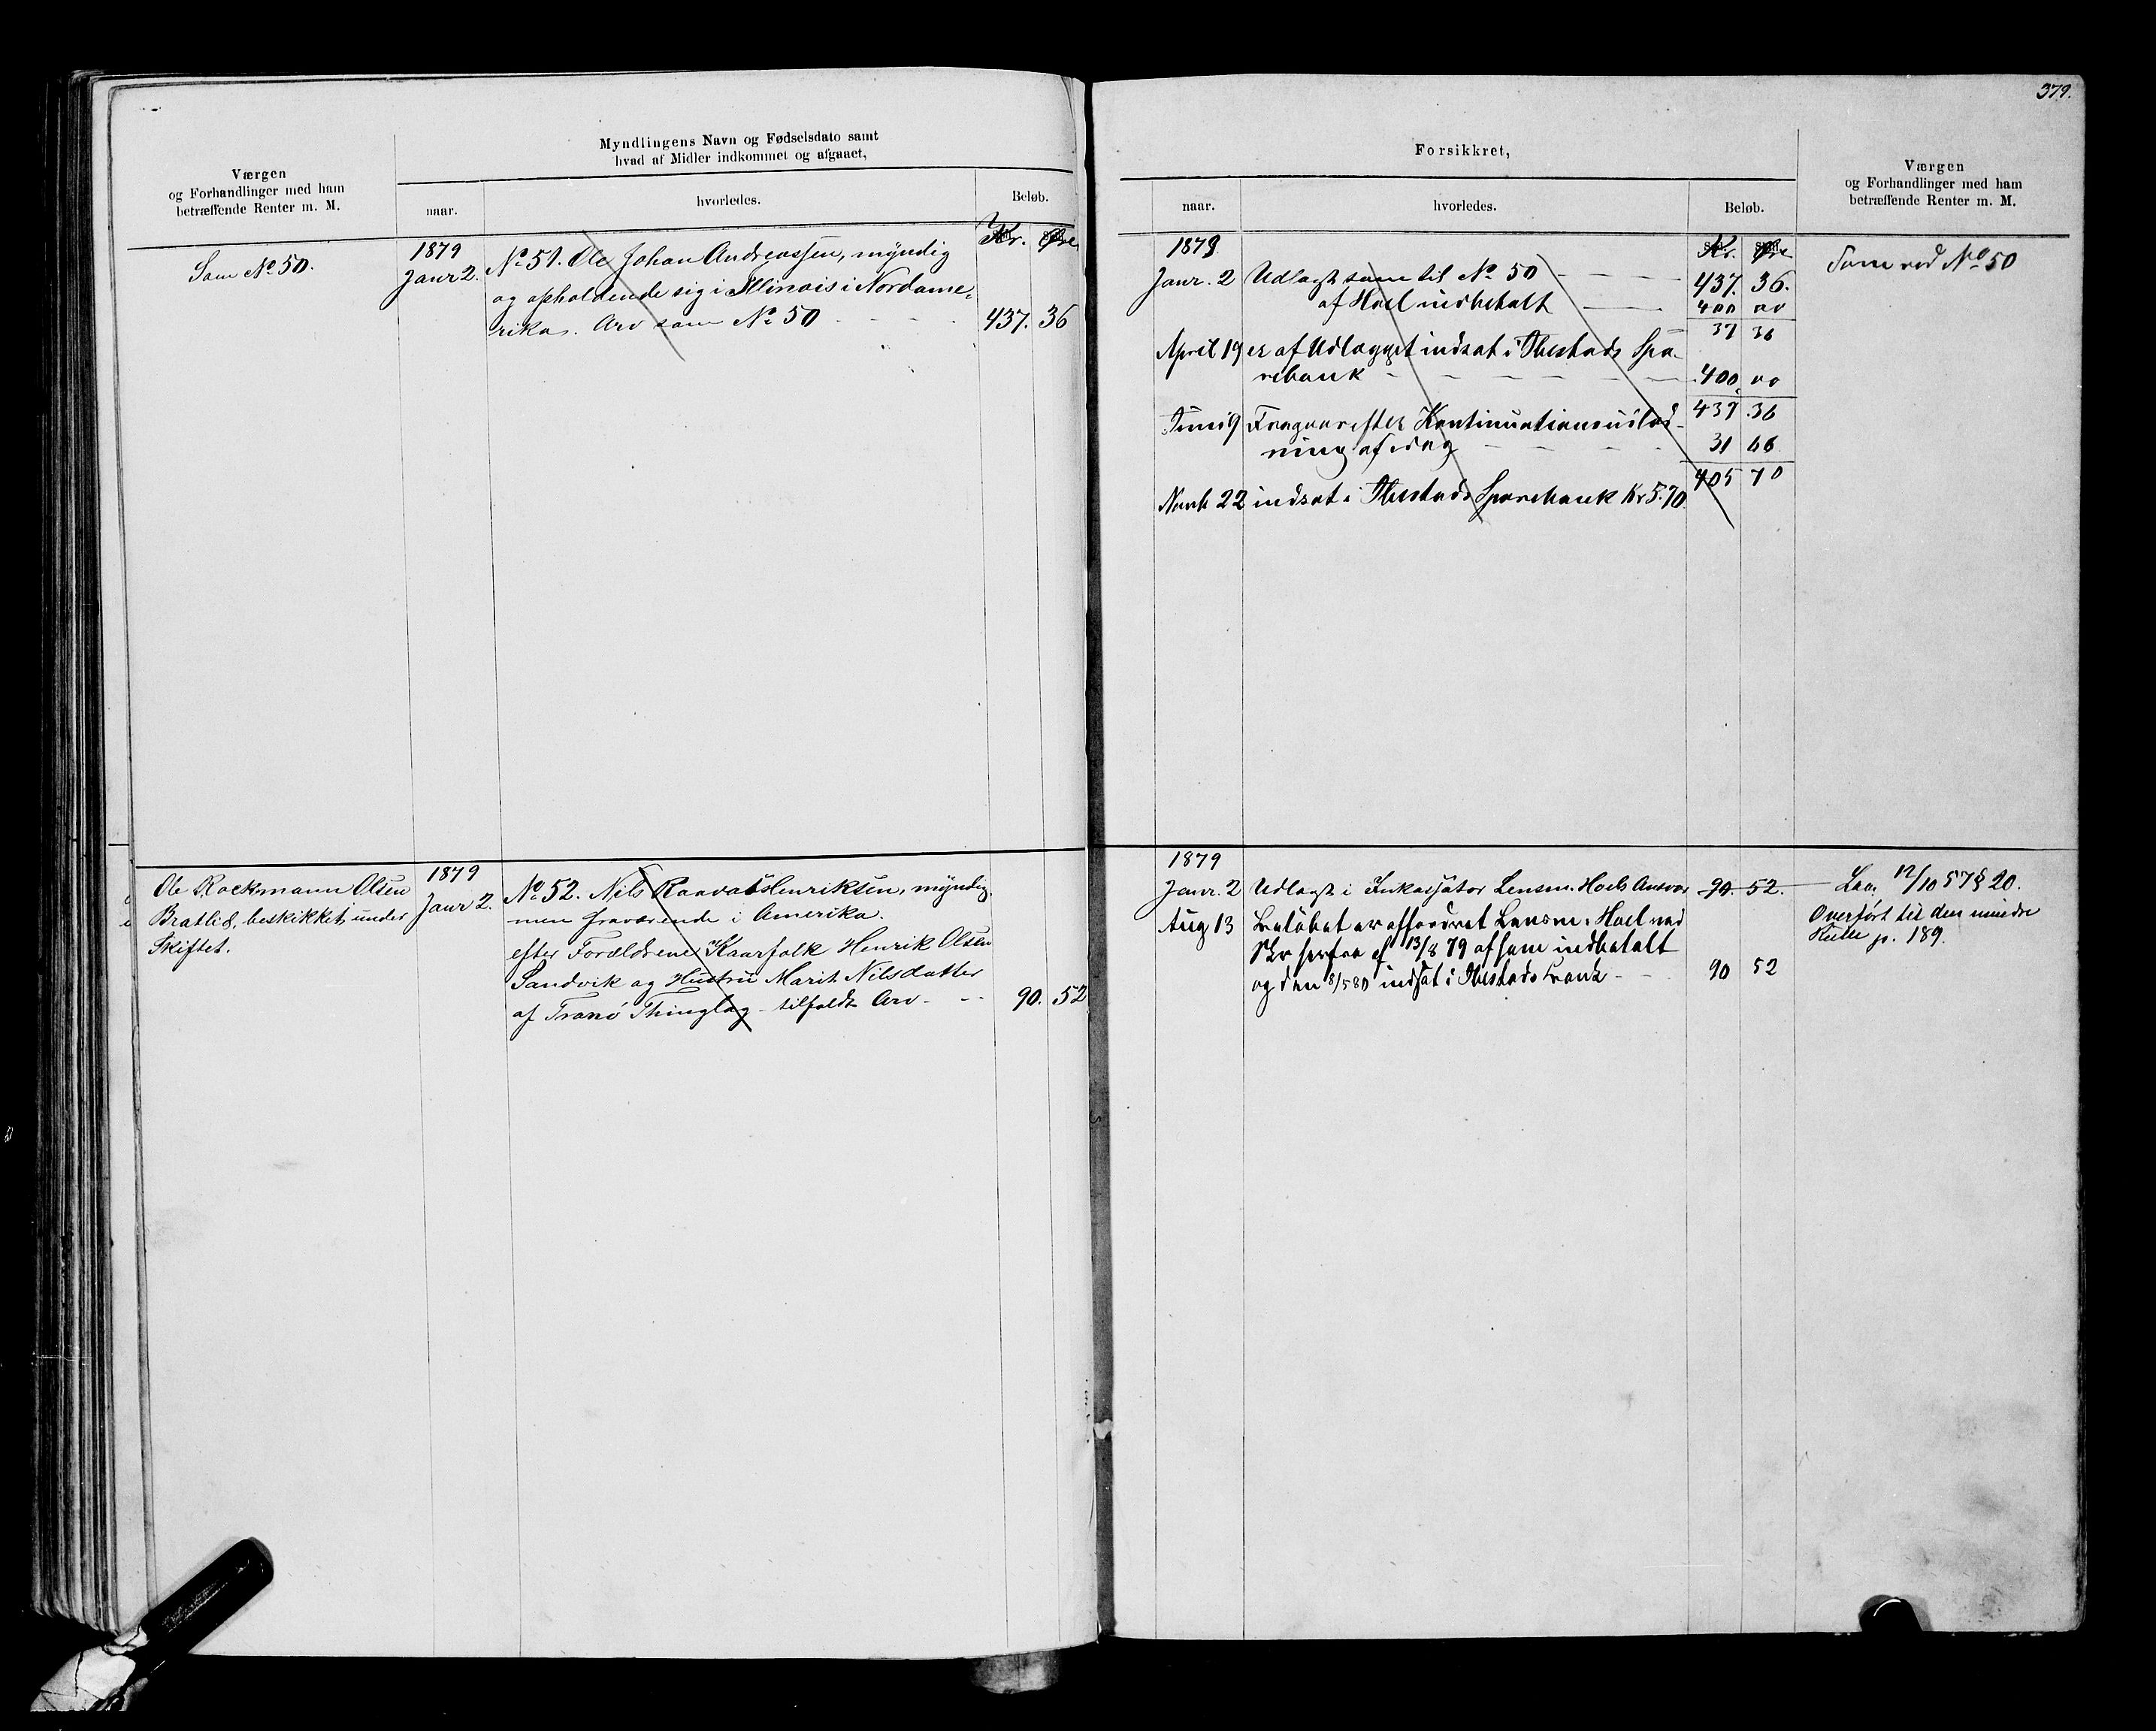 379.
Værgen
og Forhandlinger med ham
betræffende Renter m. M.
Myndlingens Navn og Fødselsdato samt
hvad af Midler indkommet og afgaaet,
naar.
hvorledes.
Beløb.
Kr. Øre
Som No 50.
1879
Janr 2.
No 51. Ole Johan Andreassen, myndig
og opholdende sig i Illinois i Nordame-
rika. Arv som No 50 - - - 437. 36
Ole Rockmann Olsen
Bratlid, beskikket under
Skiftet.
1879
Janr 2.
No 52. Nils Henriksen, myndig
men fraværende i Amerika.
efter Forældrene Kaarfolk Henrik Olsen
Sandvik og Hustru Marit Nilsdatter
af Tranö Thinglag tilfaldt Arv - - 90. 52
Forsikkret,
naar.
hvorledes.
Beløb.
Værgen
og Forhandlinger med ham
betræffende Renter m. M.
Kr. Øre
1879
Janr. 2 Udlagt som til No 50 - - - 437. 36.
af Hoel indbetalt - 400 00
37 36
April 19 er af Udlægget indsat i Ibestads Spa-
rebank - - - - - 400 00
437. 36
Juni 9 Fragaar efter Kontinuationsudlod-
ning af idag - - - 31 66
405 70
Novb 22 indsat i Ibestads Sparebank Kr 5.70
Som ved No 50
1879
Janr. 2 Udlagt i Inkassator Lensm. Hoels Ansvar 90. 52.
Aug 13 Beløbet er affordret Lensm. Hoel ved
Skr herfra af 13/8 79 af ham indbetalt
og den 8/5 80 indsat i Ibestads Bank - 90 52
Lov 12/10 57 § 20.
Overført til den mindre
p. 189.